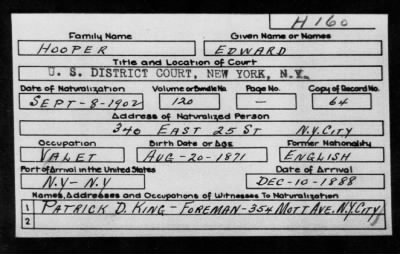 H 160
Family Name Given Name or Names
HOOPER EDWARD
Title and Location of Court
U. S. DISTRICT COURT, NEW YORK, N.Y.
Date of Naturalization Volume or Bundle No. Page No. Copy of Record No.
SEPT-8-1902 120 — 64
Address of Naturalized Person
340 EAST 25 ST N.Y. CITY
Occupation Birth Date or Age Former Nationality
VALET AUG-20-1871 ENGLISH
Port of Arrival in the United States Date of Arrival
N.Y-N.Y DEC-10-1888
Names, Addresses and Occupations of Witnesses To Naturalization
1 PATRICK D. KING-FOREMAN-354 MOTT AVE. N.Y. CITY
2